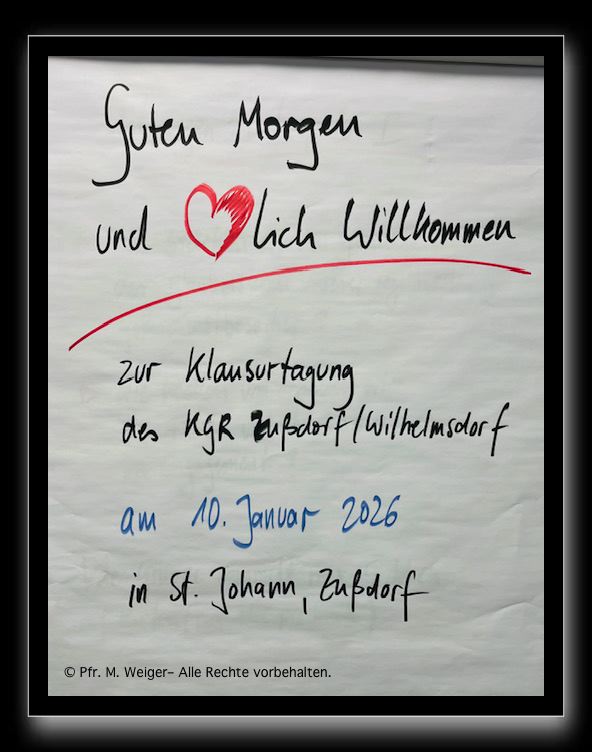 Guten Morgen
und ❤lich Willkommen
zur Klausurtagung
des KGR Zußdorf/Wilhelmsdorf
am 10. Januar 2026
in St. Johann, Zußdorf
© Pfr. M. Weiger– Alle Rechte vorbehalten.